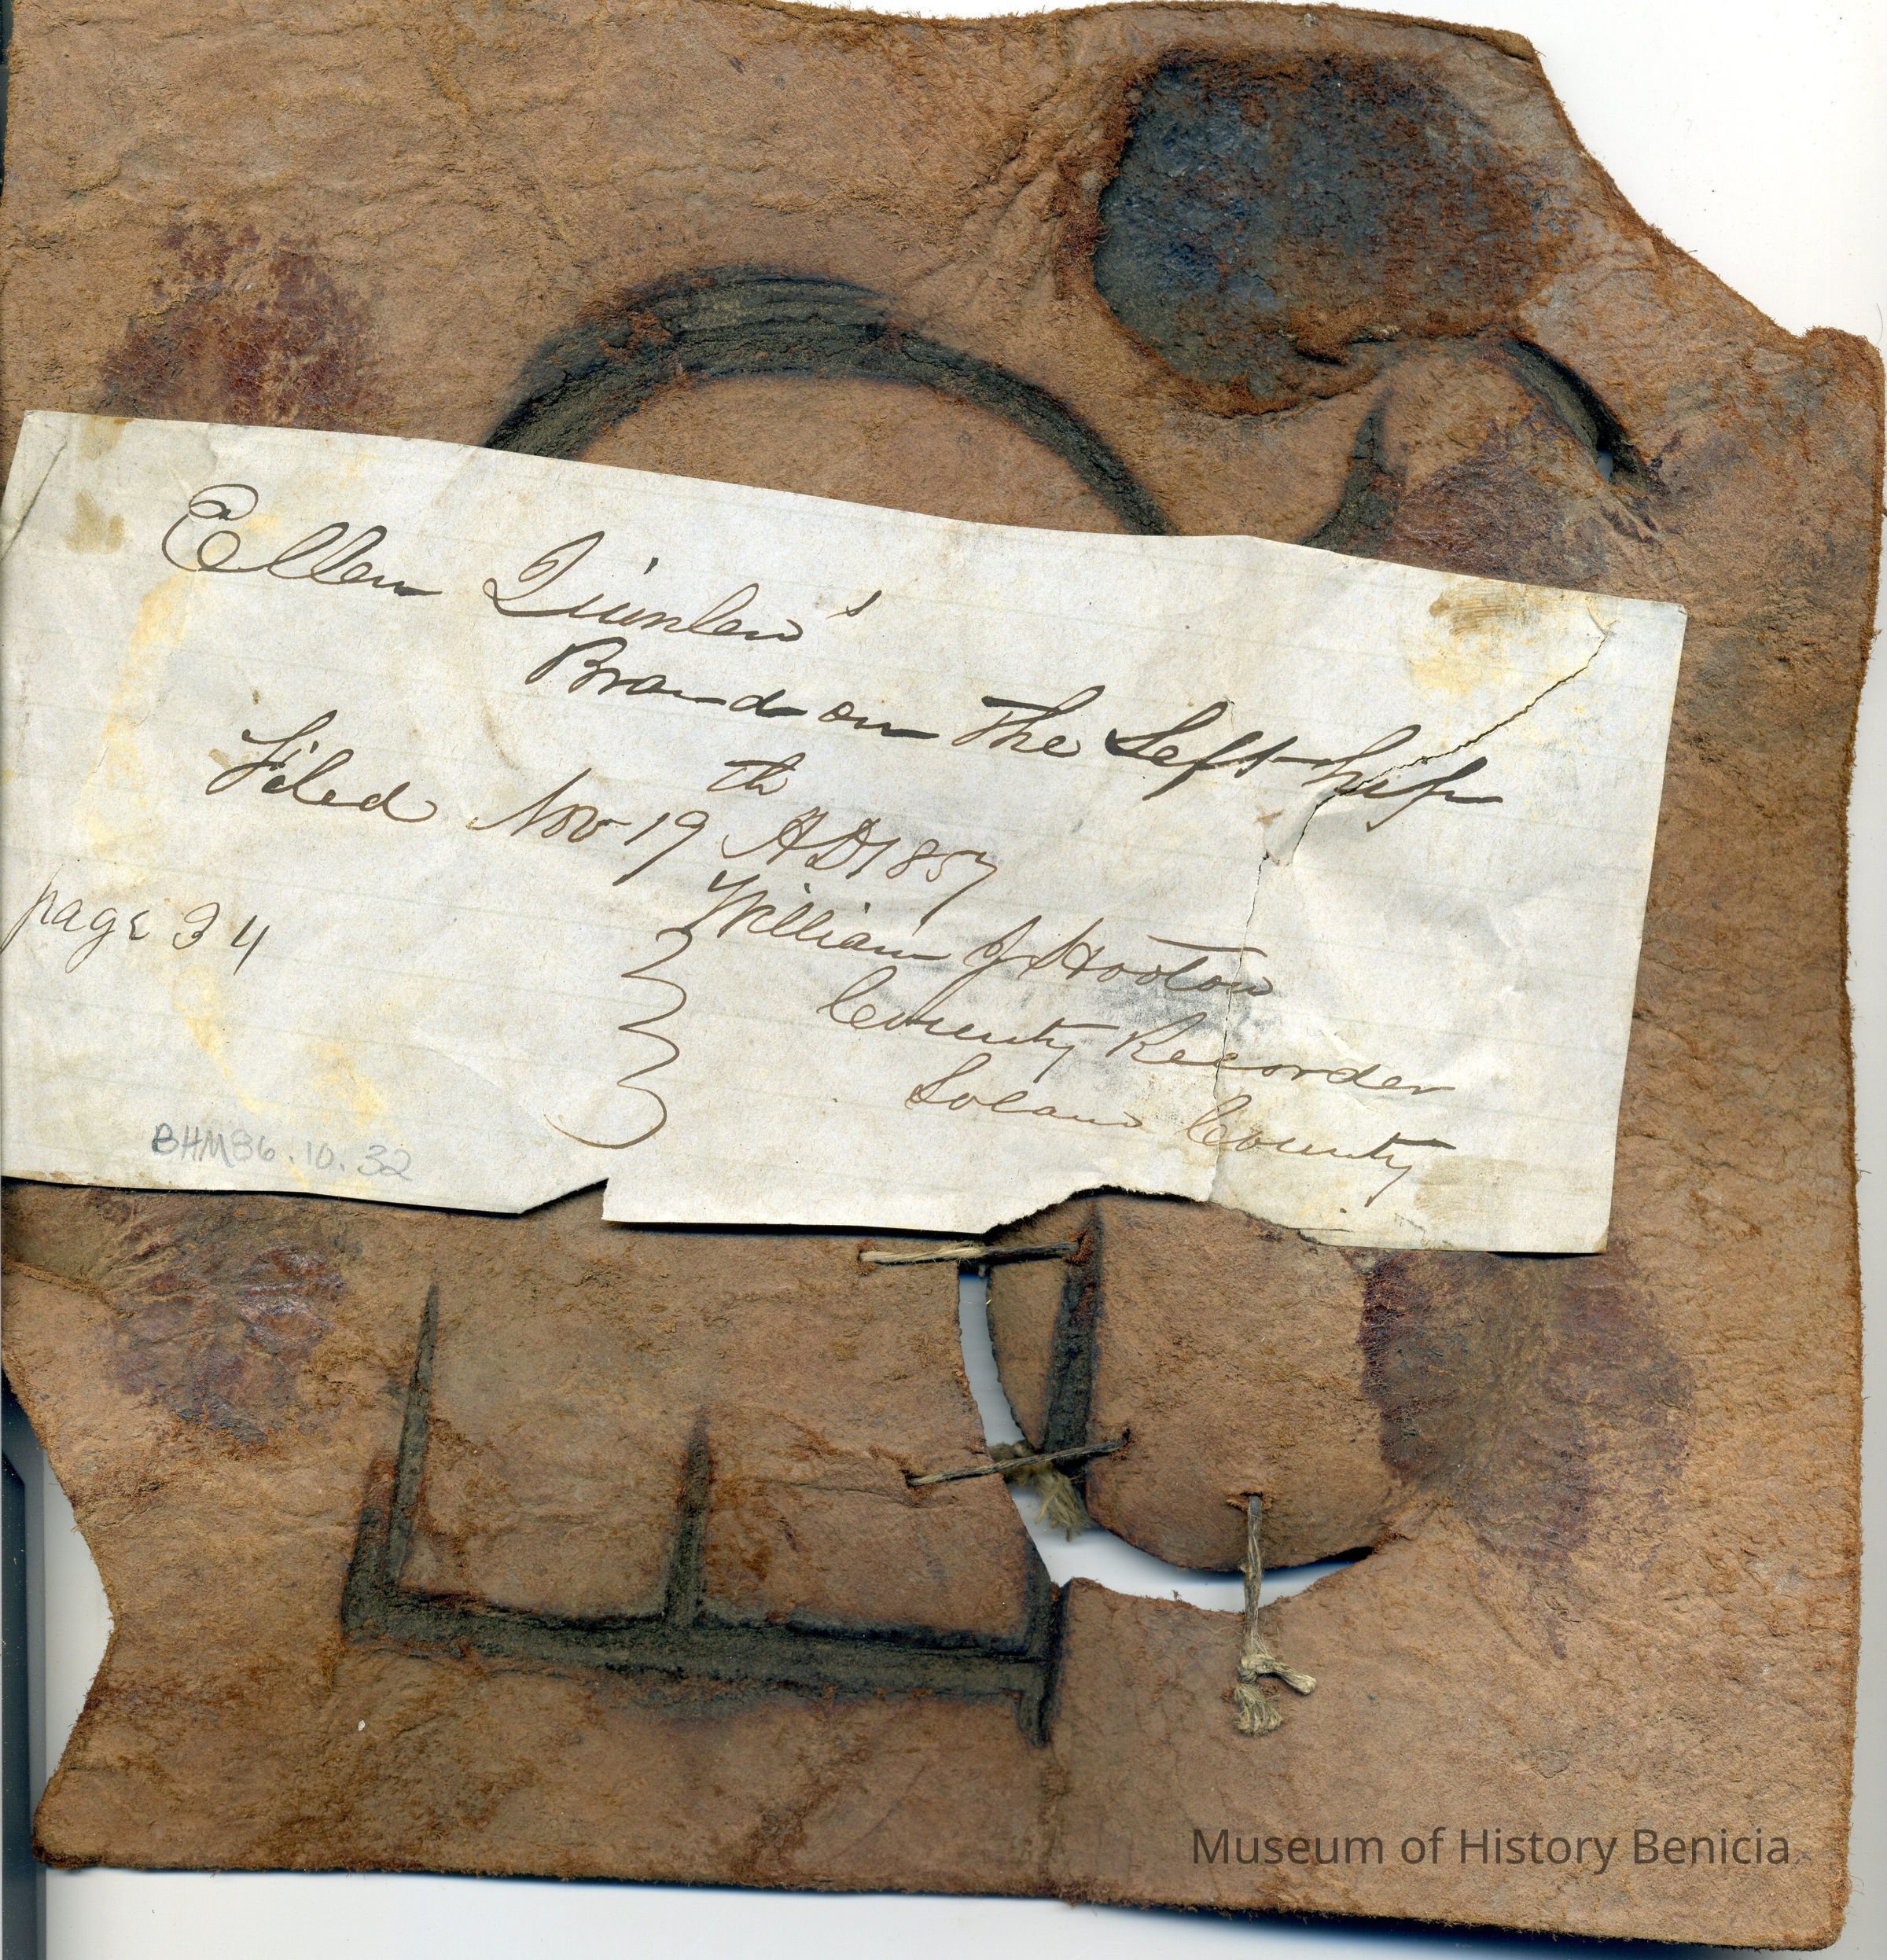 Ellen Quinlen's
Brand on The Left hip
Filed Nov 19th AD1857
William J Hooton
page 34
County Recorder
Solano County
BHM86.10.32
Museum of History Benicia